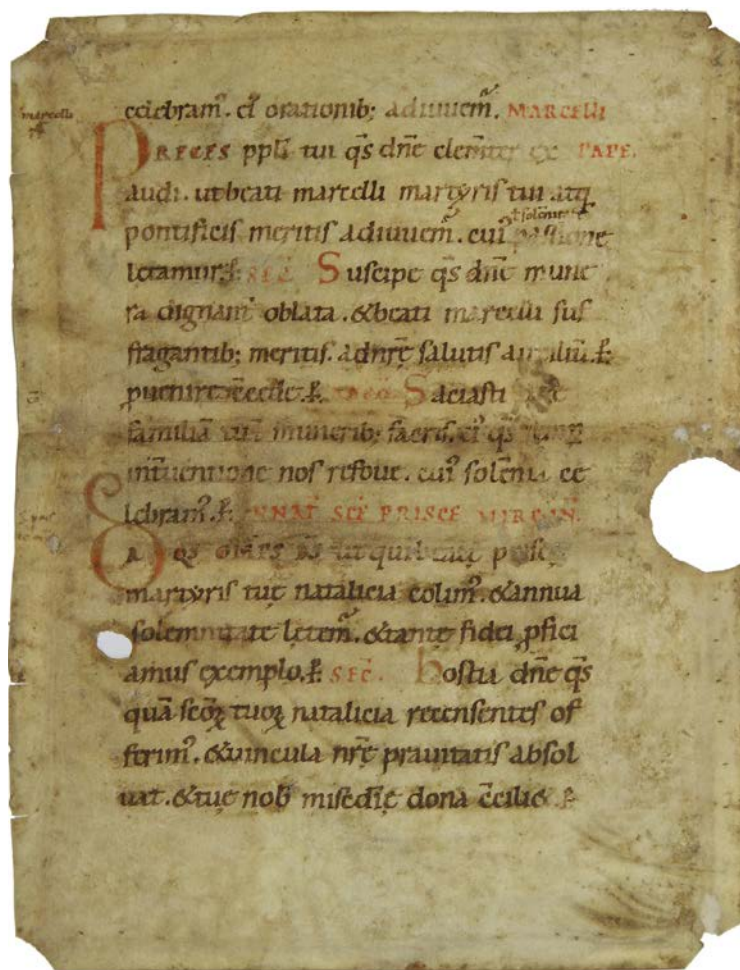 celebram᷒. ei᷒ orationib; adiuuem᷒. MARCELLI
PRECES ppli tui q̄s dn̄e clem̄ter ex PAPE.
audi. ut beati marcelli martyris tui atq
pontificis meritis adiuuem᷒. cui᷒ passione
letamur. SEC̄. Suscipe q̄s dn̄e mune
ra dignant᷒ oblata. & beati marcelli suf
fragantib; meritis. ad nr̄ę salutis auxiliū
ꝑuenire
Saciasti
familiā tuā munerib; sacris. ei᷒ q̄s
int̄uentione nos refoue. cui᷒ solēnia ce
lebram᷒. IN NAT̄ SCĒ PRISCE
DA QS OMPS DS ut qui beatę prisce
martyris tuę natalicia colim᷒. & annua
solemnitate lętem᷒. & tantę fidei ꝓfici
amus exemplo. SEC̄. hostia dn̄e q̄s
quā scōꝝ tuoꝝ natalicia recensentes of
ferim᷒. & uincula nr̄ę prauitatis absol
uat. & tuę nob̄ mis̄cdię dona c̄cilie&
marcelli